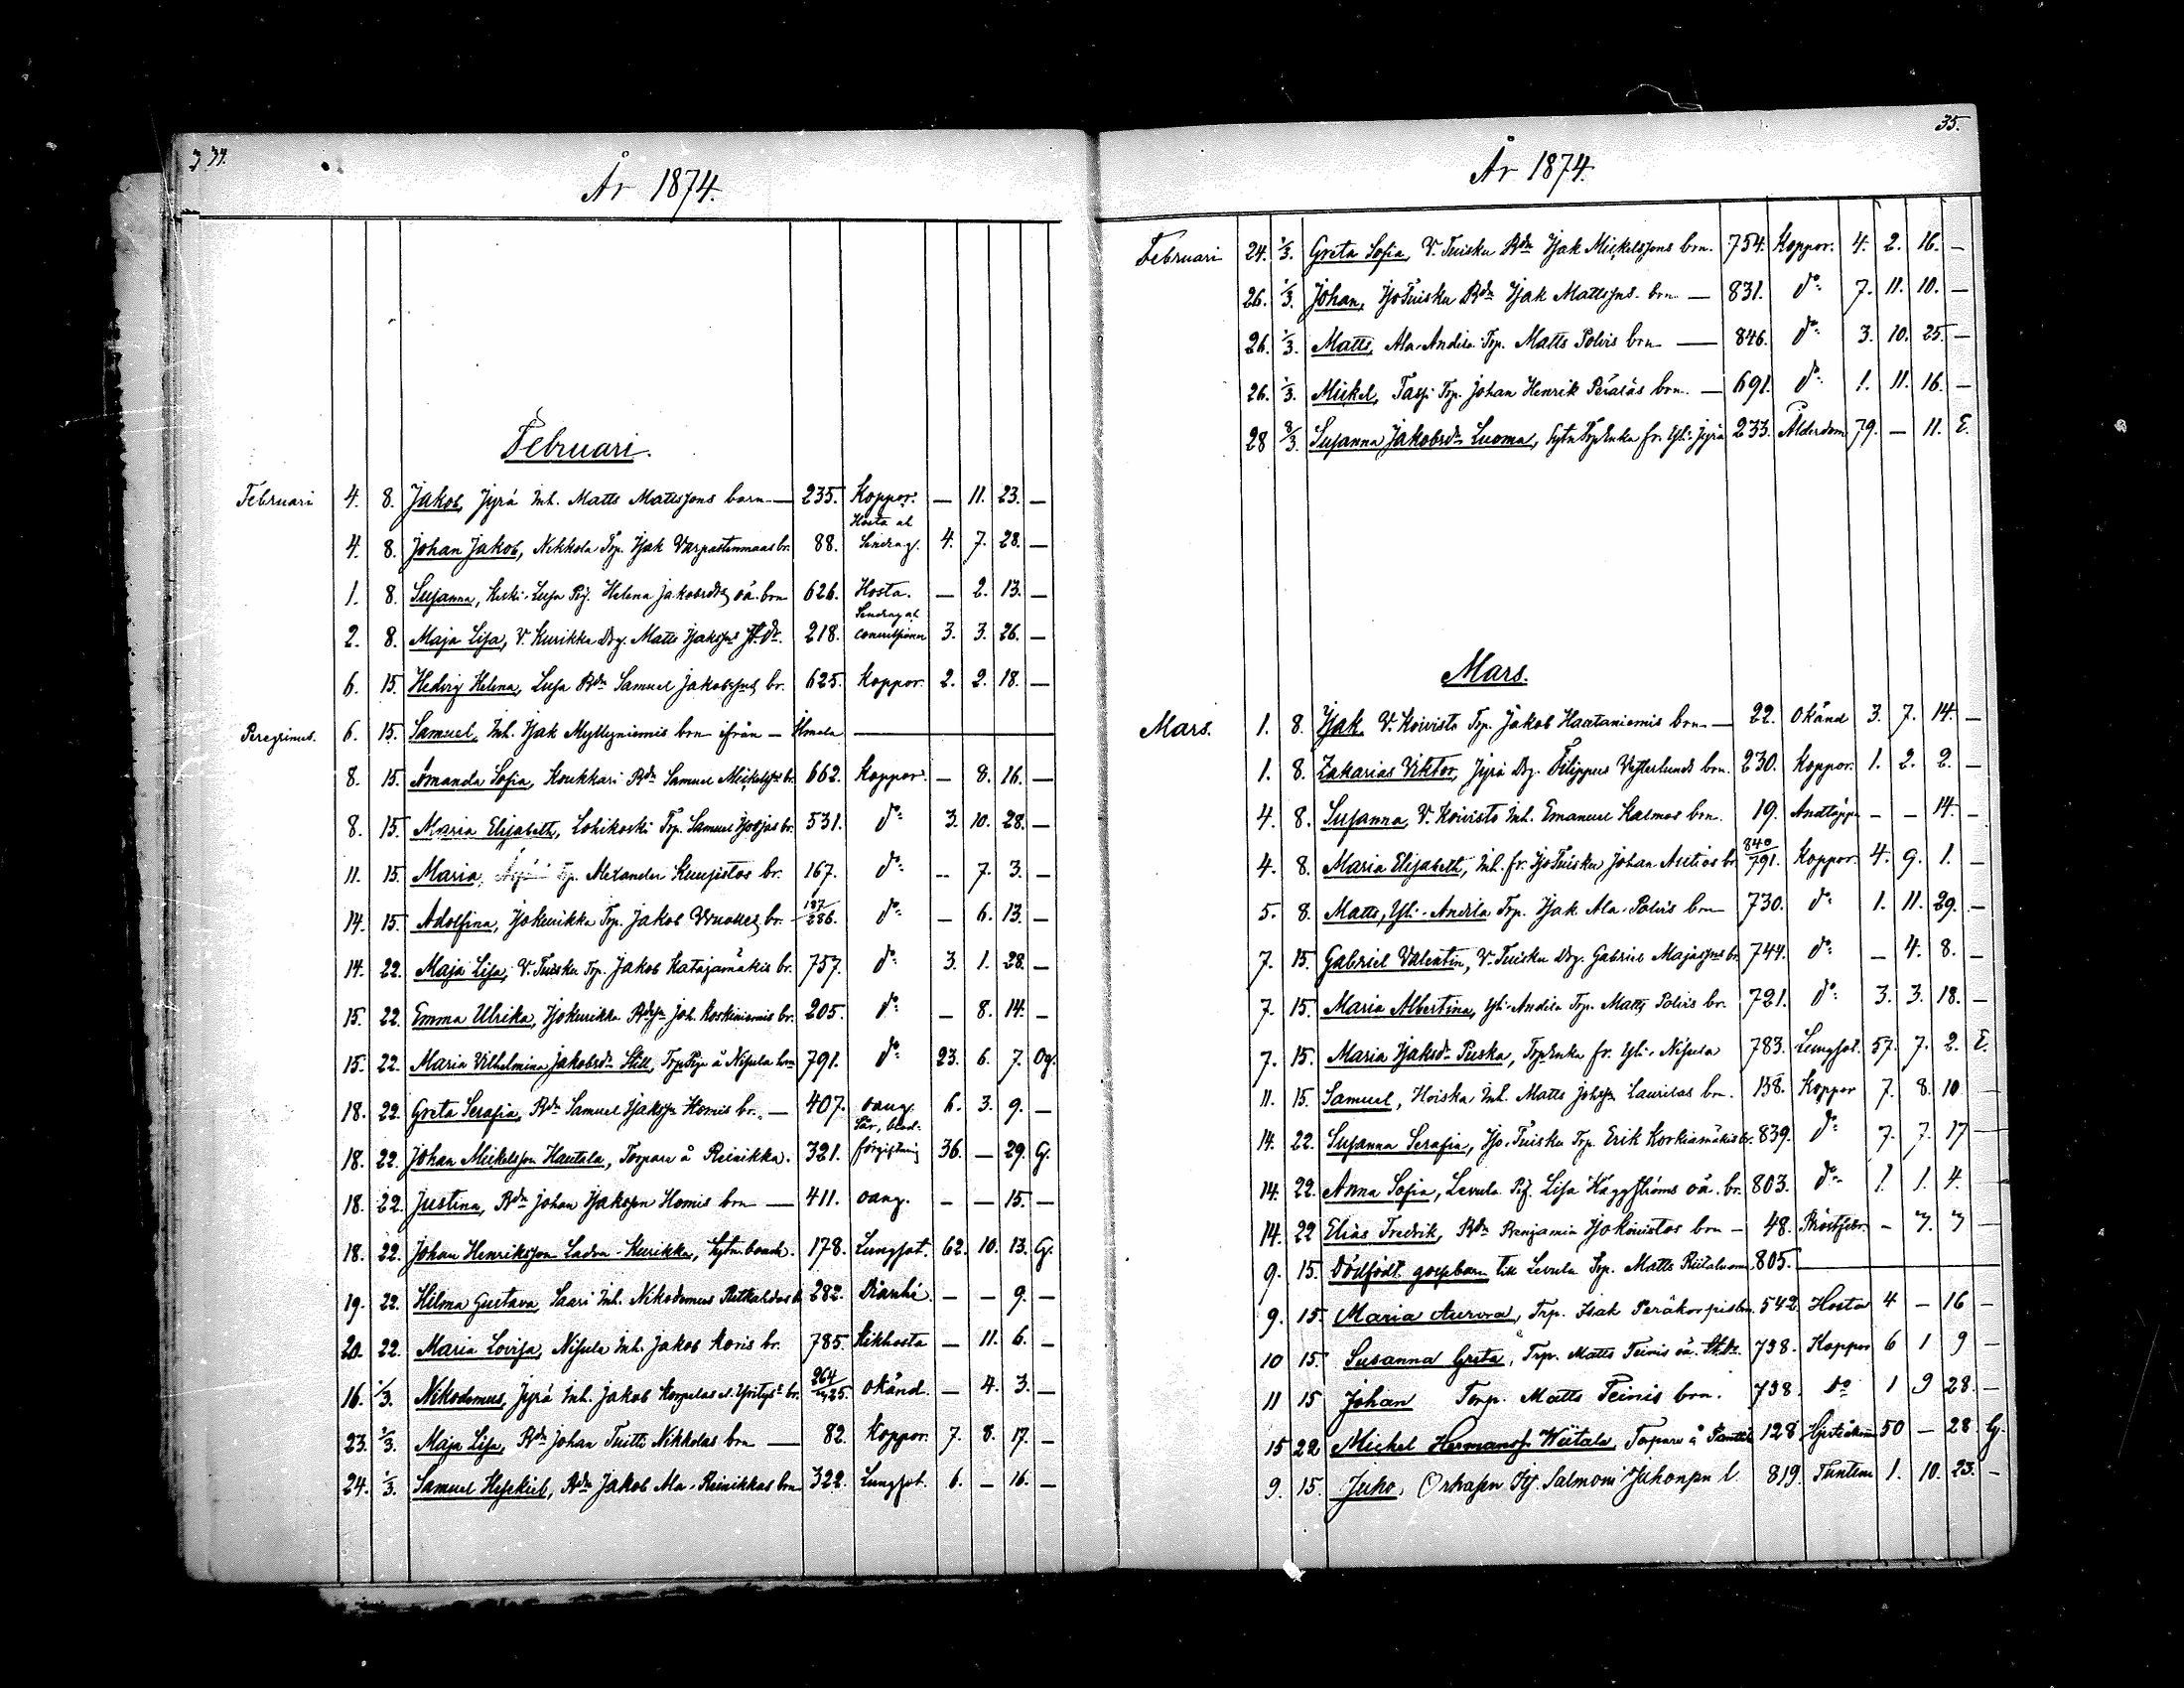 34.
År 1874.
Februari.
Februari 4. 8. Jakob, Jyrä Inh. Matts Mattssons barn — 235. Koppor. — 11. 23. —
4. 8. Johan Jakob, Nikkola Trp. Isak Varpastenmaas br. 88. Hosta at Sendrag. 4. 7. 28. —
1. 8. Susanna, Keski-Lusa Pig. Helena Jakobsdrs oä. brn 626. Hosta. — 2. 13. —
2. 8. Maja Lisa, V. Kurikka Drg. Matts Isakssns 218. Sendrag at convulsioner 3. 3. 26. —
6. 15. Hedvig Helena, Lusa Bdn Samuel Jakobssns br. 625. Koppor. 2. 2. 18. —
Peregrinus. 6. 15. Samuel, Inh. Isak Myllyniemis brn ifrån — Ilmola —
8. 15. Amanda Sofia, Koukkari Bdn Samuel Mickelssns br. 662. Koppor. — 8. 16. —
8. 15. Maria Elisabeth, Lohikoski Trp. Samuel Isotjas br. 531. do 3. 10. 28. —
11. 15. Maria, Trp. Alexander Kunjistos br. 167. do -- 7. 3. —
14. 15. Adolfina, Isokurikka Trp. Jakob br. 187/286. do — 6. 13. —
14. 22. Maja Lisa, V. Tuisku Trp. Jakob Katajamäkis br. 757. do 3. 1. 28. —
15. 22. Emma Ulrika, Isokurikka Joh. Koskiniemis br. 205. do — 8. 14. —
15. 22. Maria Vilhelmina Jakobsdr Still, å Nisula 791. do 23. 6. 7. Og.
18. 22. Greta Serafia, Bdn Samuel Isakssn Homis br. — 407. oang. 6. 3. 9. —
18. 22. Johan Mickelsson Hautala, Torpare å Reinikka. 321. Sår, blod-förgiftning 36. — 29. G.
18. 22. Justina, Bdn Johan Isaksson Homis brn — 411. oang. — — 15. —
18. 22. Johan Henriksson Ladva-Kurikka, Sytn. bonde. 178. Lungsot. 62. 10. 13. G.
19. 22. Hilma Gustava, Saari Inh. Nikodemus 282. Diarrhé. — — 9. —
20. 22. Maria Lovisa, Nisula Inh. Jakob Koris br. 785. Kikhosta — 11. 6. —
16. 1/3. Nikodemus, Jyrä Inh. Jakob Korpelas br. 264/425. Okänd. — 4. 3. —
23. 1/3. Maja Lisa, Bdn Johan Tuitti Nikkolas brn — 82. Koppor. 7. 8. 17. —
24. 1/3. Samuel Hesekiel, Bdn Jakob Ala-Reinikkas brn 322. Lungsot. 6. — 16. —
35.
År 1874.
Februari 24. 1/3. Greta Sofia, V. Tuisku Bdn Isak Mickelssons brn. 754. Koppor. 4. 2. 16. —
26. 1/3. Johan, IsoTuisku Bdn Isak Mattssns. brn — 831. do 7. 11. 10. —
26. 1/3. Matts, Ala-Andila Trp. Matts Polvis brn — 846. do 3. 10. 25. —
26. 1/3. Mickel, Tassi Trp. Johan Henrik Peräläs brn. — 691. do 1. 11. 16. —
28 8/3. Susanna Jakobsdr Luoma, Sytn. TrpEnka fr. Yli-Jyrä 233. Ålderdom 79. — 11. E.
Mars.
Mars. 1. 8. Isak, V. Koivisto Trp. Jakob Haataniemis brn — 22. Okänd 3. 7. 14. —
1. 8. Zakarias Viktor, Jyrä Drg. Filippus Vesterlunds brn. 230. Koppor. 1. 2. 2. —
4. 8. Susanna, V. Koivisto Inh. Emanuel Kalmas brn. 19. Andtäppa — — 14. —
4. 8. Maria Elisabeth, Inh. fr. IsoTuisku, Johan Antios br 840/791. Koppor. 4. 9. 1. —
5. 8. Matts, Yli-Andila Trp. Isak Ala-Polvis brn 730. do 1. 11. 29. —
7. 15. Gabriel Valentin, V. Tuisku Drg. Gabriel Majassns br. 744. do — 4. 8. —
7. 15. Maria Albertina, Yli-Andila Trp. Matts Polvis br. 721. do 3. 3. 18. —
7. 15. Maria Isaksdr Puska, TrpEnka fr. Yli-Nisula 783. Lungsot. 57. 7. 2. E.
11. 15. Samuel, Hoiska Inh. Matts Johssn Laurilas brn. 158. Koppor 7. 8. 10 —
14. 22. Susanna Serafia, Iso-Tuisku Trp. Erik Korkiamäkis br. 839. do 7. 7. 17 —
14. 22. Anna Sofia, Levula Pig. Lisa Häggströms oä. br. 803. do 1. 1. 4. —
14. 22 Elias Fredrik, Bdn Benjamin Isokoivistos brn — 48. Bröstfeber. — 7. 7 —
9. 15. Dödfödt gossebarn till Levula Trp. Matts 805. —
9. 15. Maria Aurora, Trp. Isak Peräkorpis brn. 542. Hosta 4 — 16 —
10 15. Susanna Greta, Trp. Matts Teinis oä. 738. Koppor 6 1 9 —
11 15 Johan Torp. Matts Teinis brn. 738. Do 1 9 28. —
15 22 Mickel Hermanss. Wiitala, Torpare å 128 50 — 28. G.
9. 15. Juho, Orhasen Isj. Salmoni Juhonpn l. 819. Tuntem 1. 10. 23. —